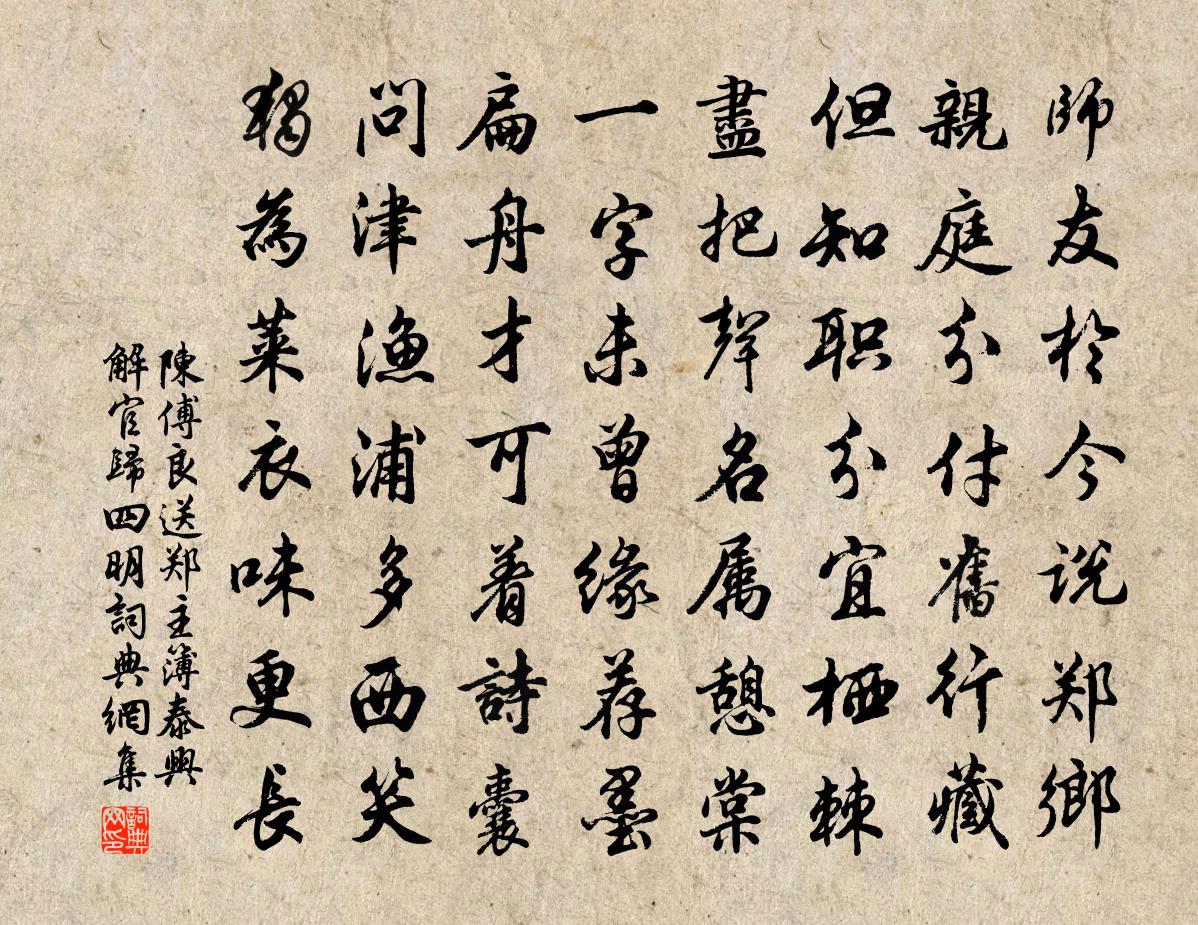 師友於今说郑鄉
親庭分付舊行藏
但知职分宜栖棘
盡把聲名属憩棠
一字未曾缘荐墨
扁舟才可着詩囊
問津渔浦多西笑
獨為菜衣味更長
陳傅良送郑主簿泰興
解官歸四明詞典網集
詞典
网印